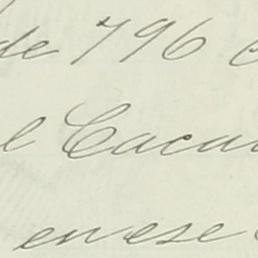 de 796
l Cacau
en ese